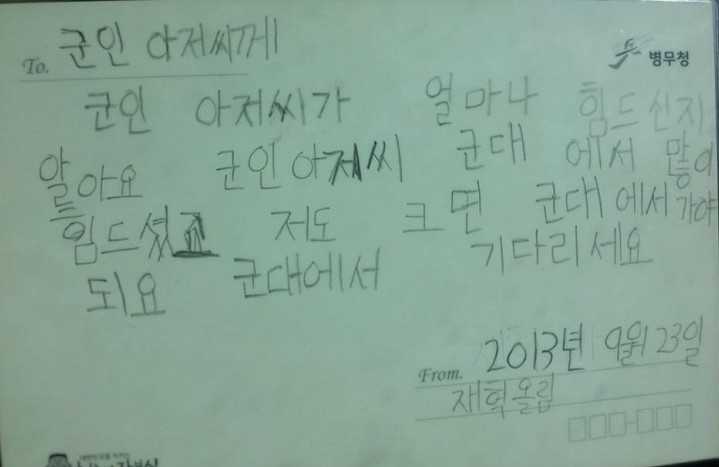 To. 군인 아저씨께
병무청
군인 아저씨가 얼마나 힘드신지
알아요 군인아저씨 군대 에서 많이
힘드셨고 저도 크면 군대에서 가야
되요 군대에서 기다리세요
From. 2013년 9월 23일
재혁올림